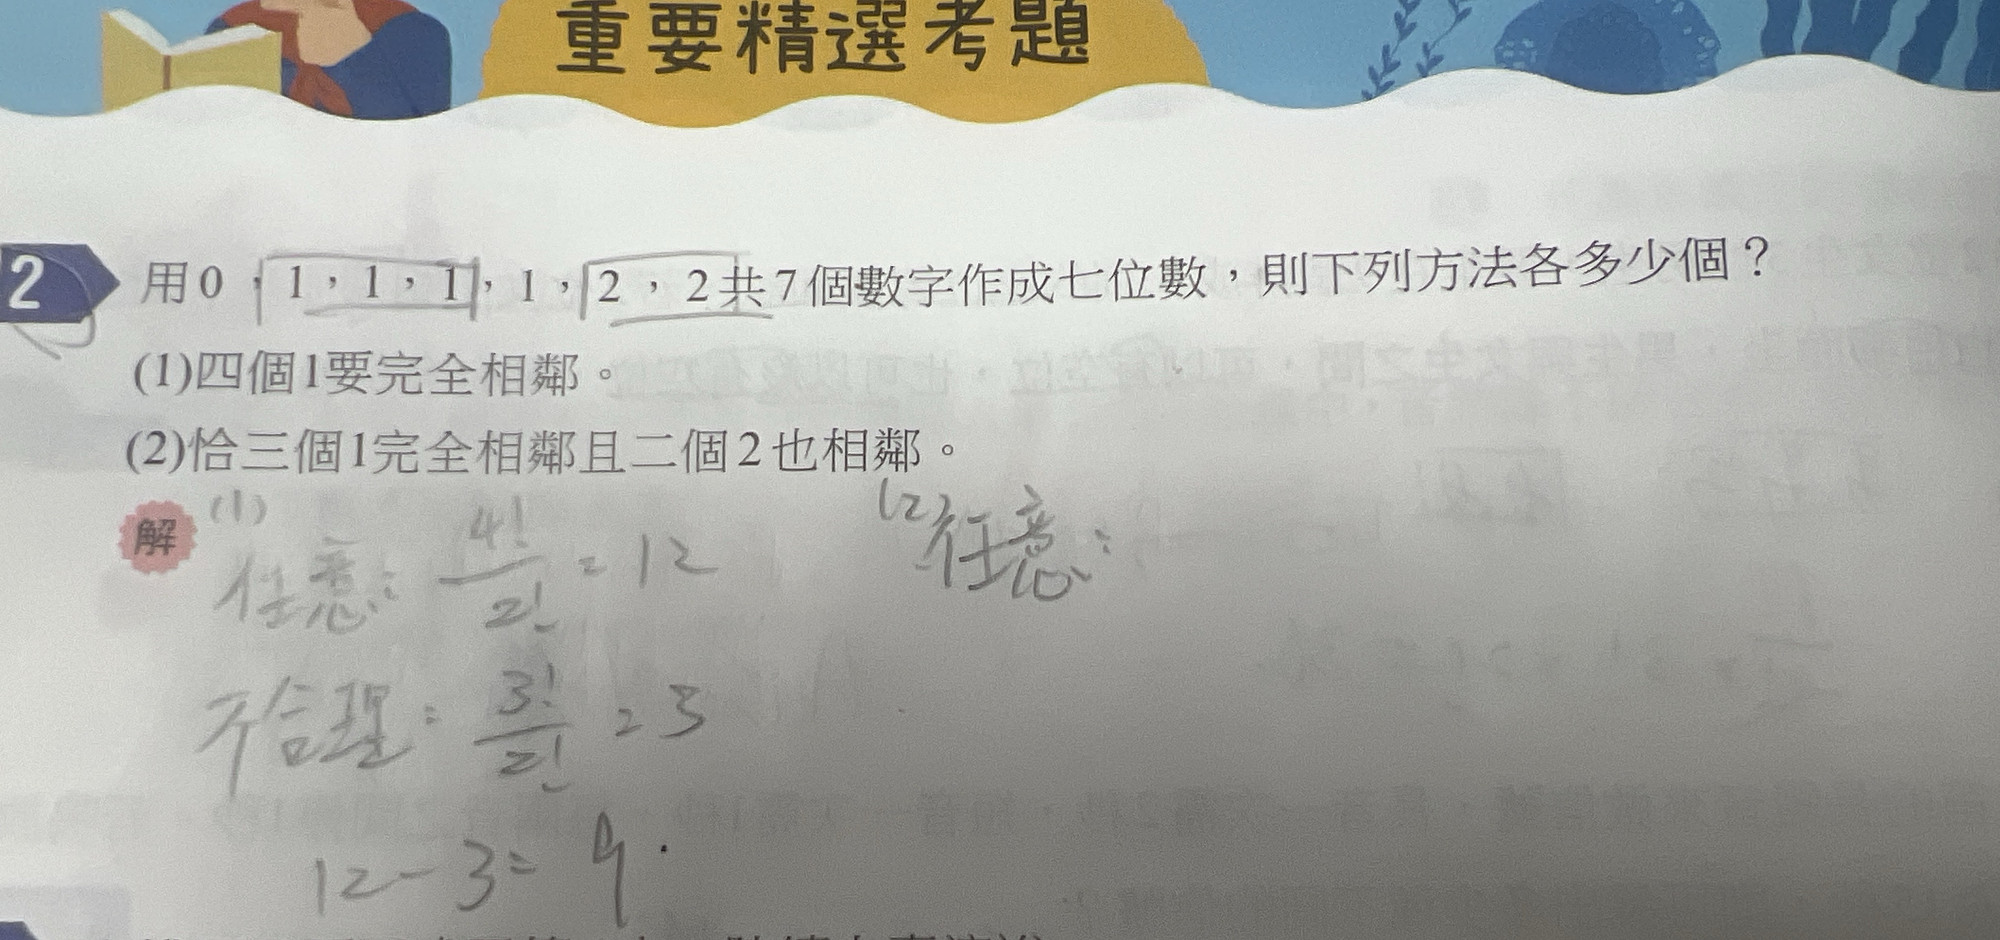 重要精選考題
2 用0，1，1，1，1，2，2共7個數字作成七位數，則下列方法各多少個？
(1)四個1要完全相鄰。
(2)恰三個1完全相鄰且二個2也相鄰。
解 (1)
任意：4!/2! = 12
(2)任意：
不合理：3!/2! = 3
12-3=9.